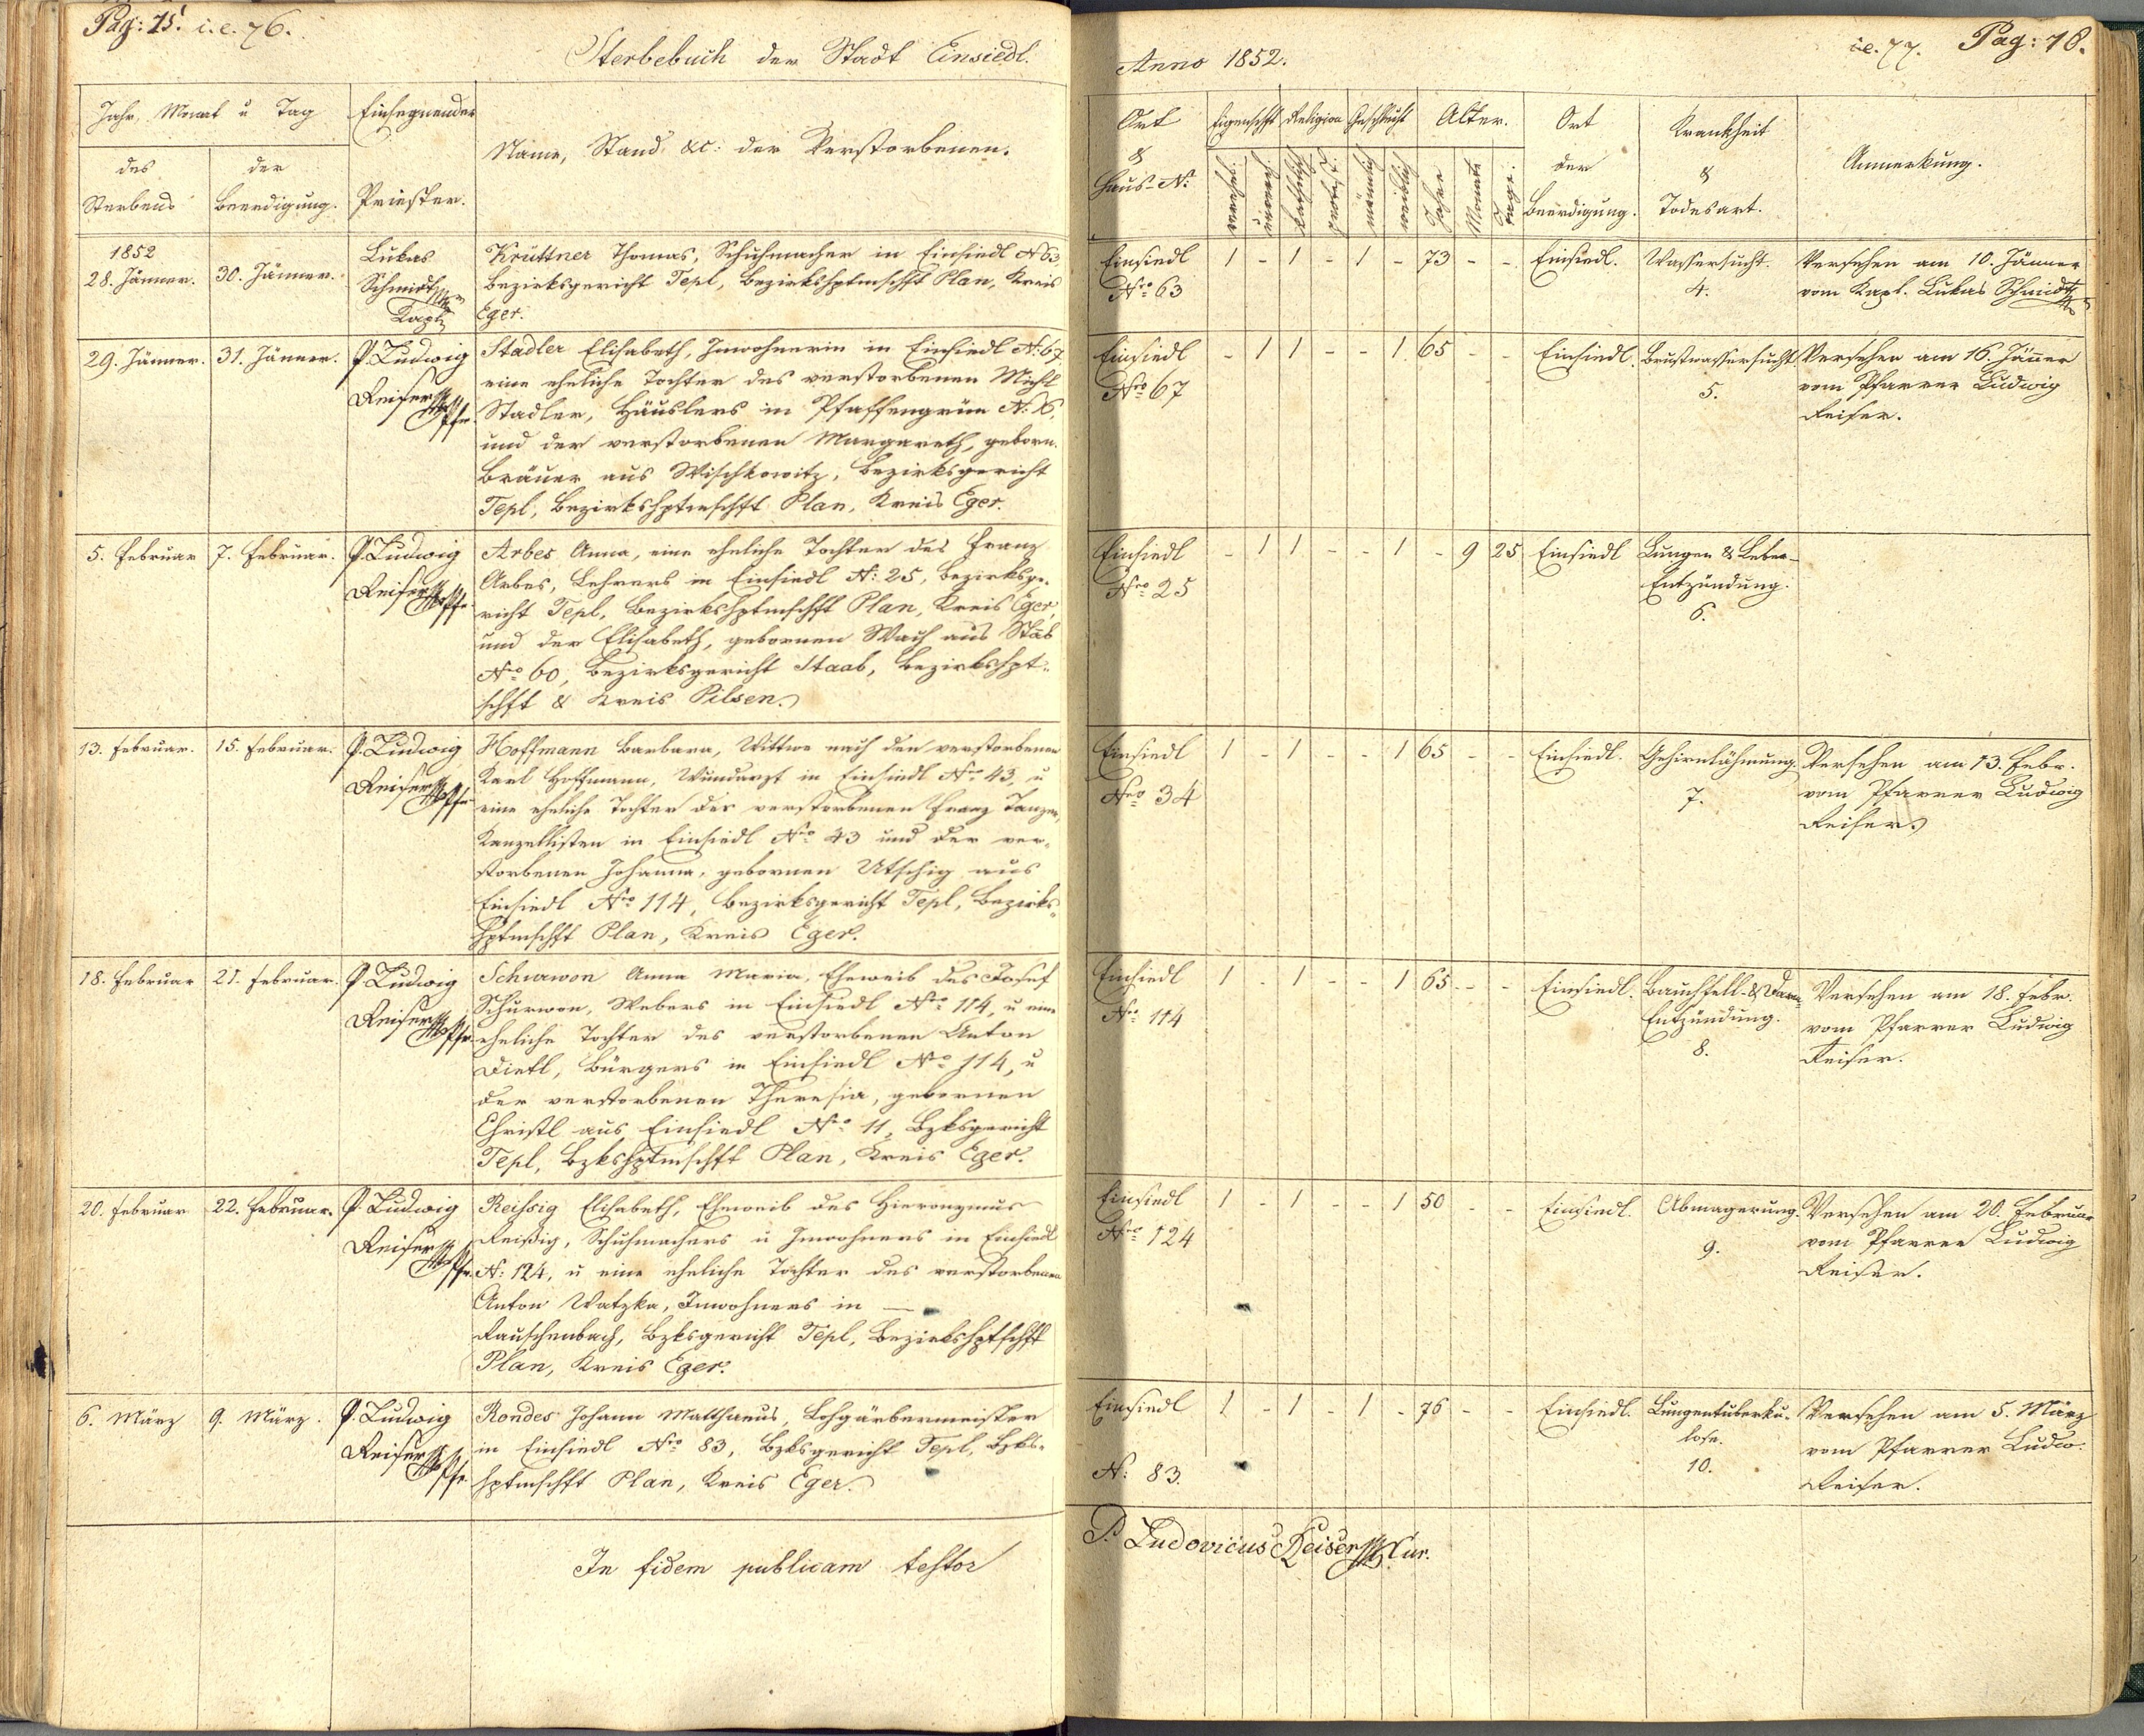 Pag: 75. i.e. 76.
Sterbebuch der Stadt Einsiedl.
Jahr, Monat u Tag
des Sterbens
der Beerdigung.
Einsegnender Priester.
Name, Stand &c: der Verstorbenen.
1852
28. Jänner.
30. Jänner.
Lukas
Schmidt
Kapl
Krüttner Thomas, Schuhmacher in Einsiedl N 63
Bezirksgericht Tepl, Bezirkshptmschft Plan, Kreis
Eger.
29. Jänner.
31. Jänner.
P. Ludwig
Reiser Pfr.
Stadler Elisabeth, Inwohnerin in Einsiedl N. 67
eine eheliche Tochter des verstorbenen Michl
Stadler, Häuslers in Pfaffengrün N:
und der verstorbenen Margareth, geborn.
Bräuer aus Wischkowitz, Bezirksgericht
Tepl, Bezirkshptmschft Plan, Kreis Eger.
5. Februar
7. Februar.
P. Ludwig
Reiser Pfr
Arbes Anna, eine eheliche Tochter des Franz
Arbes, Lehrers in Einsiedl N: 25, Bezirksge-
richt Tepl, Bezirkshptmschft Plan, Kreis Eger,
und der Elisabeth, gebornen Wach aus Stab
Nro 60, Bezirksgericht Staab, Bezirkshpt-
schft & Kreis Pilsen.
13. Februar.
15. Februar.
P. Ludwig
Reiser Pfr
Hoffmann Barbara, Wittwe nach den verstorbenen
Karl Hoffmann, Wundarzt in Einsiedl Nro 43, u
eine eheliche Tochter des verstorbenen Franz Tanzer,
Kanzellisten in Einsiedl Nro 43 und der ver-
storbenen Johanna, gebornen Utschig aus
Einsiedl Nro 114, Bezirksgericht Tepl, Bezirks-
hptmschft Plan, Kreis Eger.
18. Februar
21. Februar.
P. Ludwig
Reiser Pfr.
Schurwon Anna Maria, Eheweib des Josef
Schurwon, Webers in Einsiedl Nro 114, u eine
eheliche Tochter des verstorbenen Anton
Dietl, Bürgers in Einsiedl Nro 114, u
der verstorbenen Theresia, gebornen
Christl aus Einsiedl Nro 11, Bzksgericht
Tepl, Bzkshptmschft Plan, Kreis Eger.
20. Februar
22. Februar.
P. Ludwig
Reiser Pfr.
Reissig Elisabeth, Eheweib des Hieronymus
Reißig, Schuhmachers u Inwohners in Einsiedl
N: 124, u eine eheliche Tochter des verstorbenen
Anton Watzka, Inwohners in —
Rauschenbach, Bzksgericht Tepl, Bezirkshptschft
Plan, Kreis Eger.
6. März
9. März.
P. Ludwig
Reiser Pfr
Rondes Johann Matthaeus, Lohgärbermeister
in Einsiedl Nro 83, Bzksgericht Tepl, Bzks-
hptmschft Plan, Kreis Eger.
In fidem publicam testor
Anno 1852.
i.e. 77. Pag: 76.
Ort & Haus-N:
Eigenschft
Religion
Geschlecht
Alter.
Ort der Beerdigung.
Krankheit & Todesart.
Anmerkung.
katholisch
männlich
weiblich
Jahre
Monate
Tage.
Einsiedl 1 - 1 - 1 - 73 - - Einsiedl. Wassersucht. Versehen am 10. Jänner
Nro 63 4. vom Kapl. Lukas Schmidt
Einsiedl - 1 1 - - 1 65 - - Einsiedl. Brustwassersucht. Versehen am 16. Jänner
Nro 67 5. vom Pfarrer Ludwig
Reiser.
Einsiedl - 1 1 - - 1 - 9 25 Einsiedl Lungen & Leber-
Nro 25 Entzündung.
6.
Einsiedl 1 - 1 - - 1 65 - - Einsiedl. Gehirnlähmung. Versehen am 13. Febr.
Nro 34 7. vom Pfarrer Ludwig
Reiser.
Einsiedl 1 - 1 - - 1 65 - - Einsiedl. Bauchfell- & Darm- Versehen am 18. Febr.
Nro 114 Entzündung. vom Pfarrer Ludwig
8. Reiser.
Einsiedl 1 - 1 - - 1 50 - - Einsiedl. Abmagerung. Versehen am 20. Februar
Nro 124 9. vom Pfarrer Ludwig
Reiser.
Einsiedl 1 - 1 - 1 - 76 - - Einsiedl. Lungentuberku- Versehen am 5. März
lose. vom Pfarrer Ludw.
N: 83. 10. Reiser.
P. Ludovicus Reiser Cur.